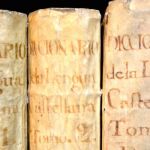 ARIO
gua
1.
DICIONARIO
de la Lengua
Castellana
Tomo. 2.
DICCIO
de la L
Caste
Tom